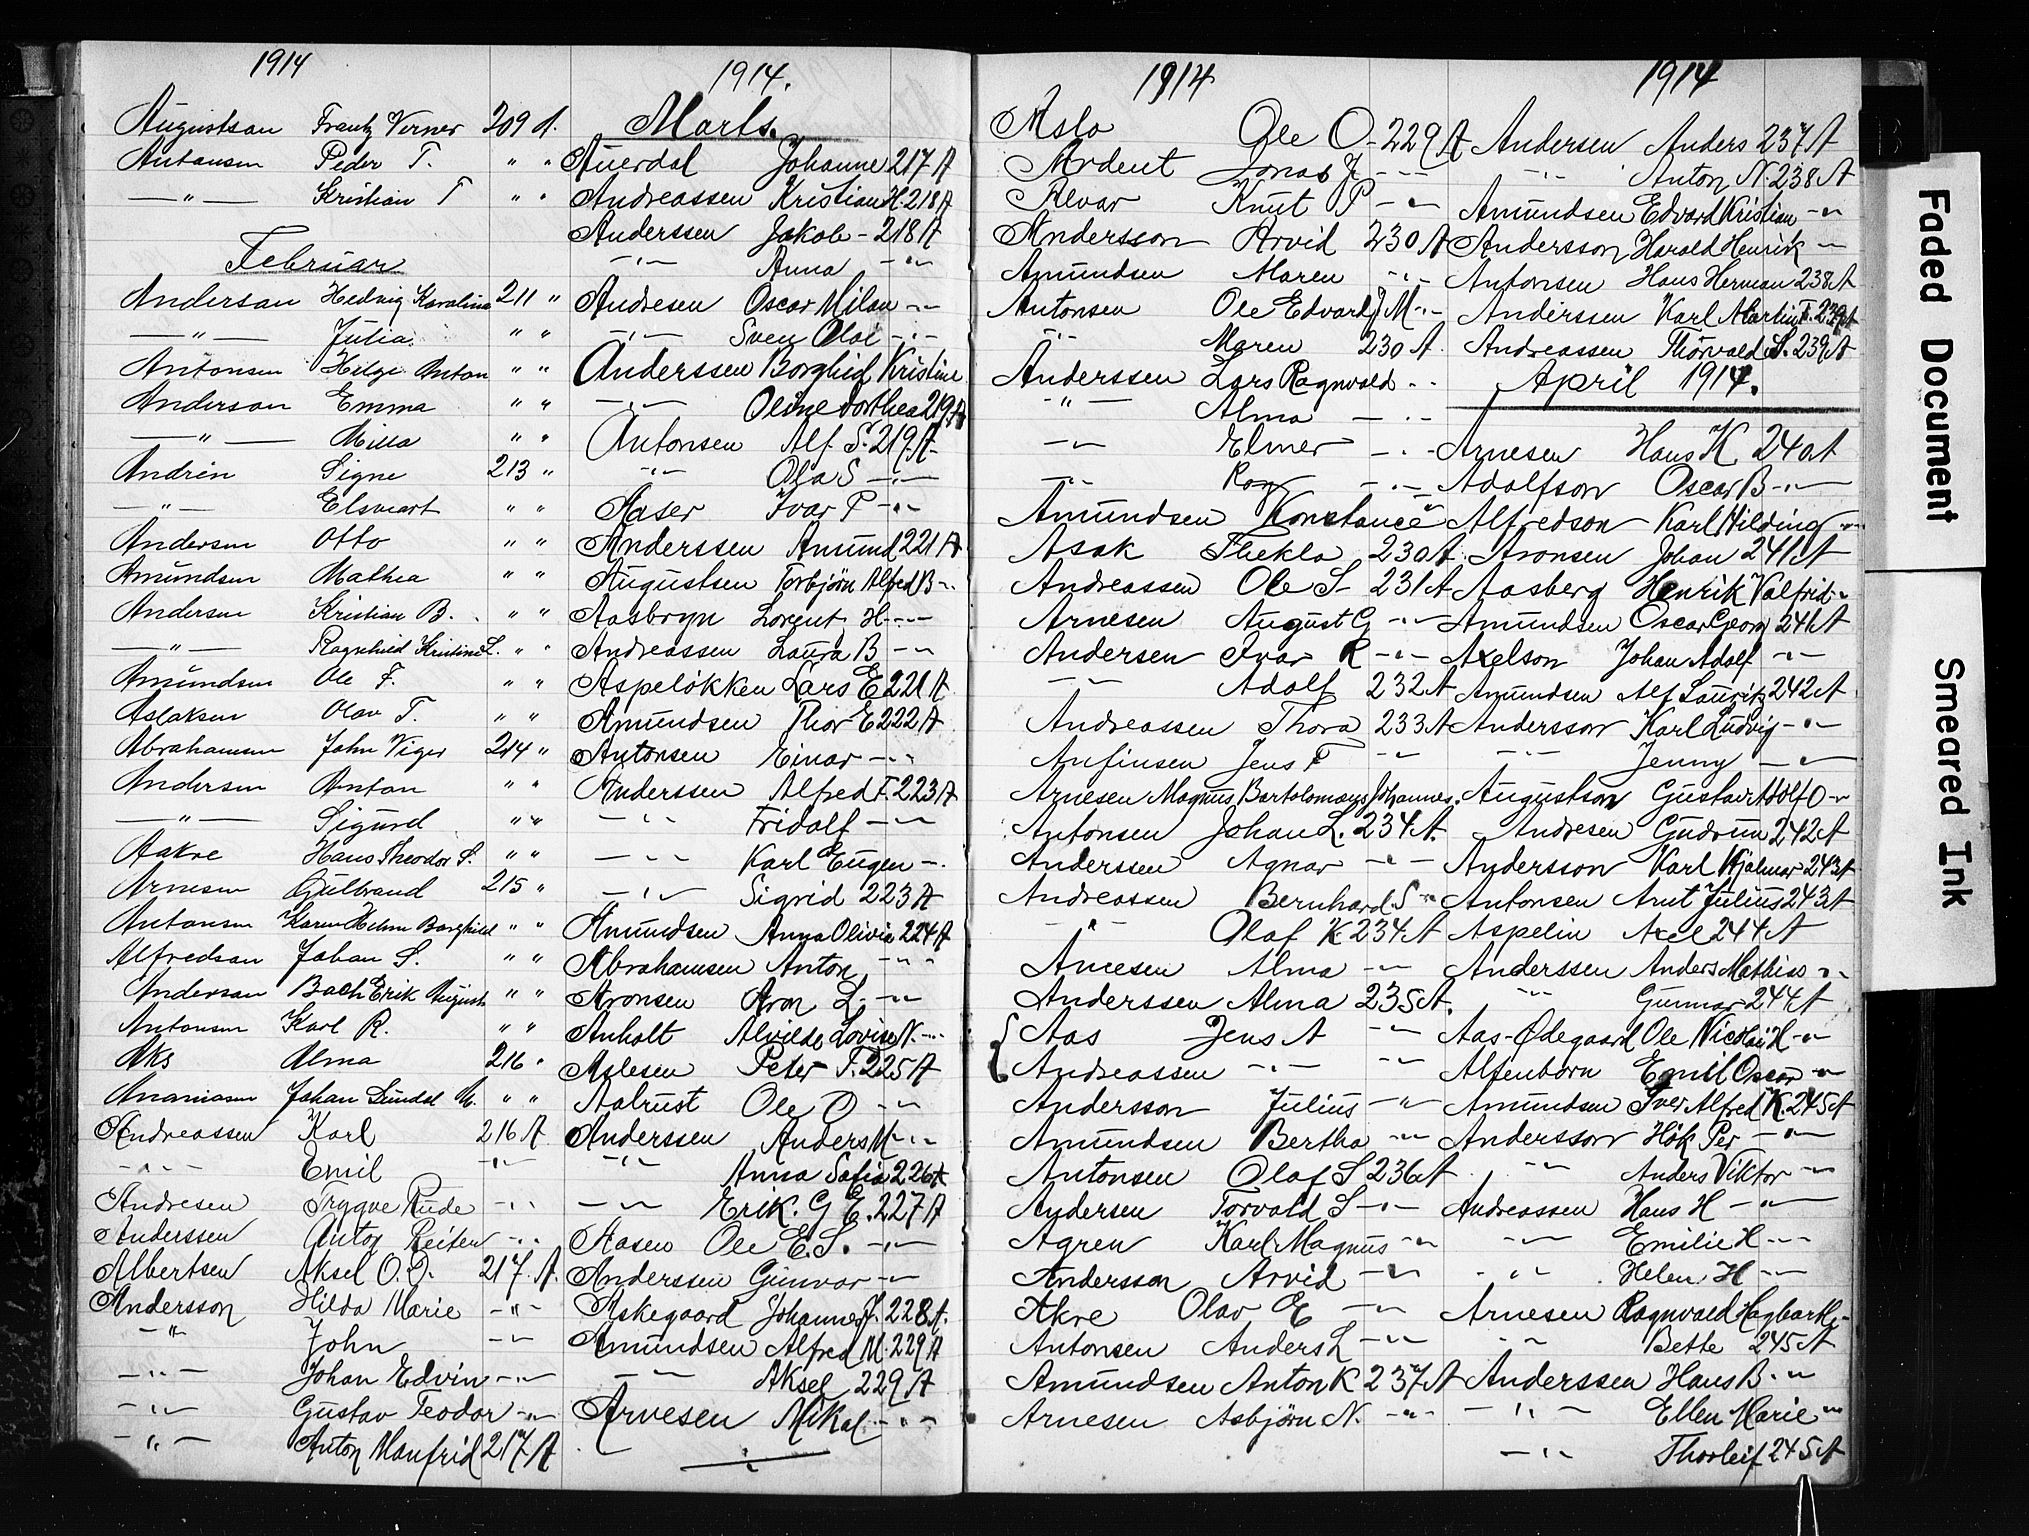 1914
Augustson Frantz Verner 209 A.
Antonsen Peder T. " "
—"— Kristian T " "
Februar
Anderson Hedvig Karolina 211 "
—"— Julia " "
Antonsen Helge Anton " "
Anderson Emma " "
—"— Missa " "
Andrin Signe 213 "
—"— Elsvart " "
Andersen Otto " "
Amundsen Mathea " "
Andersen Kristian B. " "
—"— Ragnhild Kristine L. " "
Amundsen Ole F. " "
Aslaksen Olav T. " "
Abrahamsen John Viger 214 "
Andersen Anton " "
—"— Sigurd " "
Aakre Hans Theodor S. " "
Arnesen Gulbrand 215 "
Antonsen Karen Helene Borghild " "
Alfredson Johan S. " "
Anderson Bach Erik August " "
Antonsen Karl R. " "
Aks Alma 216 "
Ananiasen Johan Lundal M. " "
Andreassen Karl 216 A
-"- Emil -"-
Andresen Trygve Rude -"-
Anderssen Anton Reiten -"-
Albertsen Aksel O.O. 217 A.
Andersson Hilda Marie -"-
-"- John -"-
-"- Johan Edvin -"-
-"- Gustav Teodor -"-
-"- Anton Manfrid 217 A
1914.
Marts.
Auerdal Johanne 217 A
Andreassen Kristian H. 218 A
Anderssen Jakob - 218 A
-"- Anna -"-
Andresen Oscar Milan -"-
-"- Sven Olai -"-
Anderssen Borghid Kristine
-"- Oline Dorthea 219 A
Antonsen Alf S. 219 A
-"- Ola S -"-
Aaser Ivar P -"-
Anderssen Amund 221 A
Augustsen Torbjörn Alfred B -"-
Aasbryn Lorents H -"-
Andreassen Laura B -"-
Aspelökken Lars E 221 A
Amundsen Thor E 222 A
Antonsen Einar -"-
Anderssen Alfred F. 223 A
-"- Fridolf -"-
-"- Karl Eugen -"-
-"- Sigrid 223 A
Amundsen Anna Olivia 224 A
Abrahamsen Anton -"-
Aronsen Aron L. -"-
Anholt Alvilde Lovise N. -"-
Aslesen Peter T. 225 A
Aalrust Ole O -"-
Anderssen Anders M -"-
-"- Anna Sofia 226 A
-"- Erik. G E. 227 A
Aasen Ole E. S. -"-
Anderssen Gunvor -"-
Askegaard Johannes J. 228 A.
Amundsen Alfred M. 229 A
-"- Aksel 229 A
Arvesen Mikal -"-
1914
Aslo Ole O - 229 A
Ardent Jonas J. -"-
Alvar Knut P -"-
Andersson Arvid 230 A
Amundsen Maren -"-
Antonsen Ole Edvard J M -"-
-"- Maren 230 A.
Anderssen Lars Ragnvald -"-
-"- Alma -"-
-"- Elmer -"-
-"- Roy -"-
Amundsen Konstance "
Asak Thekla 230 A
Andreassen Ole S - 231 A
Arnesen August G -"-
Andersen Ivar R -"-
-"- Adolf 232 A
Andreassen Thora 233 A
Anfinsen Jens F -"-
Arnesen Magnus Bartolomæus Johannes.
Antonsen Johan L. 234 A.
Anderssen Agnar -"-
Andreassen Bernhard S -"-
-"- Olaf K 234 A
Arnesen Alma -"-
Anderssen Alma 235 A.
Aas Jens A -"-
Andreassen -"- -"-
Andersson Julius -"-
Amundsen Bertha -"-
Antonsen Olaf S 236 A
Andersen Torvald S -"-
Agren Karl Magnus -"-
Andersson Arvid -"-
Akre Olav E -"-
Antonsen Anders L -"-
Amundsen Anton K 237 A
Arnesen Asbjörn N. -"-
1914
Andersen Anders 237 A
-"- Anton N. 238 A
Amundsen Edvard Kristian -"-
Andersson Harald Henrik -"-
Antonsen Hans Herman 238 A
Anderssen Karl Martin F. 239 A
Andreassen Thorvald S. 239 A
April 1914.
Arnesen Hans K 240 A
Adolfson Oscar B -"-
Alfredson Karl Hilding -"-
Aronsen Johan 241 A
Aasberg Henrik Valfrid -"-
Amundsen Oscar Georg 241 A
Axelson Johan Adolf -"-
Amundsen Alf Lauritz 242 A
Andersson Karl Ludvig -"-
-"- Jenny -"-
Augustson Gustav Adolf O -"-
Andresen Gudrun 242 A
Andersson Karl Hjalmar 243 A
Antonsen Arnt Julius 243 A
Aspelin Axel 244 A
Anderssen Anders Mathias -"-
-"- Gunnar 244 A
Aas-Ødegaard Ole Nicolai H -"-
Alfenborn Emil Oscar -"-
Amundsen Iver Alfred K. 245 A
Andersson Hök Per -"-
-"- Anders Viktor -"-
Andreassen Hans H -"-
-"- Emilie H -"-
-"- Helen H -"-
Arnesen Ragnvald Hagbarth -"-
-"- Bette 245 A
Anderssen Hans B. -"-
-"- Ellen Marie -"-
-"- Thorleif 245 A
B
Faded Document
Smeared Ink